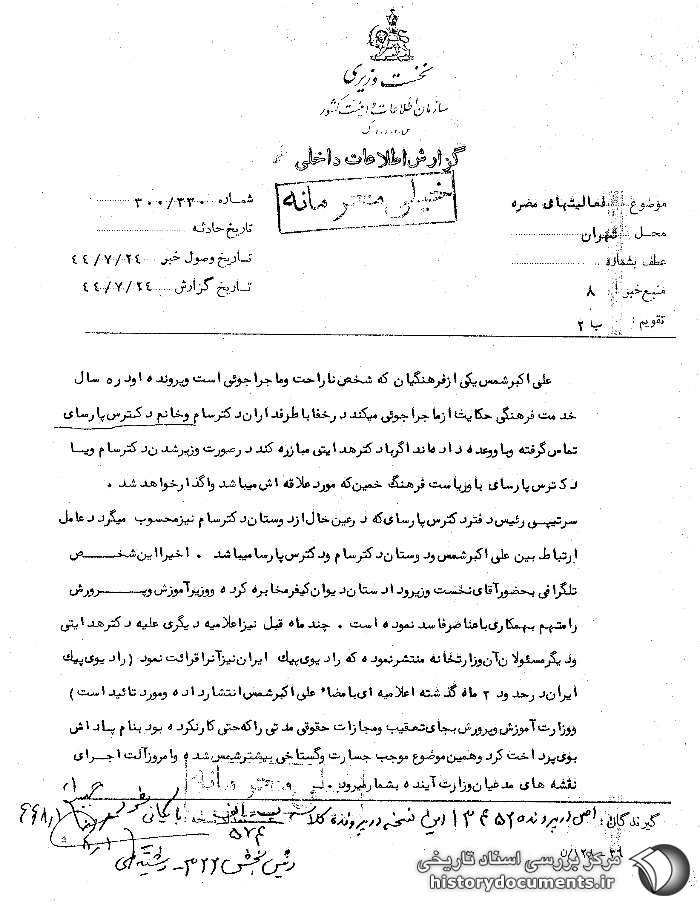 نخست وزیری
سازمان اطلاعات و امنیت کشور
س.ا.و.ا.ک
گزارش اطلاعات داخلی
خیلی محرمانه
موضوع فعالیتهای مضره
شماره ۳۰۰/۳۳۰
محل تهران
تاریخ حادثه
عطف بشماره
تاریخ وصول خبر ۴۴/۷/۲۴
منبع خبر ۸
تاریخ گزارش ۴۴/۷/۲۴
تقویم: ب ۲
علی اکبر شمس یکی از فرهنگیان که شخص ناراحت وماجراجوئی است وپرونده او در ۵ سال
خدمت فرهنگی حکایت از ماجراجوئی میکند در خفا با طرفداران دکتر سام وخانم دکتر س پارسای
تماس گرفته وباو وعده داده اند اگر با دکتر هدایتی مبارزه کند در صورت وزیر شدن دکتر سام ویا
دکتر س پارسای باو ریاست فرهنگ خمین که مورد علاقه اش میباشد واگذار خواهد شد .
سرتیپی رئیس دفتر دکتر س پارسای که در عین حال از دوستان دکتر سام نیز محسوب میگردد عامل
ارتباط بین علی اکبر شمس ودوستان دکتر سام ودکتر س پارسا میباشد . اخیرا این شخص
تلگرافی بحضور آقای نخست وزیر ودادستان دیوان کیفر مخابره کرده ووزیر آموزش وپرورش
را متهم بهمکاری با عناصر فاسد نموده است . چند ماه قبل نیز اعلامیه دیگری علیه دکتر هدایتی
ودیگر مسئولان آن وزارتخانه منتشر نموده که رادیو پیک ایران نیز آنرا قرائت نمود ( رادیو پیک
ایران در حدود ۲ ماه گذشته اعلامیه ای بامضاء علی اکبر شمس انتشار داده ومورد تائید است )
ووزارت آموزش وپرورش بجای تعقیب ومجازات حقوقی مدتی را که حتی کار نکرده بود بنام پاداش
بوی پرداخت کرد وهمین موضوع موجب جسارت وگستاخی بیشتر شمس شده وامروز آلت اجرای
نقشه های مدعیان وزارت آینده بشمار میرود .
خیلی محرمانه
گیرندگان: اصل در پرونده ۱۳۴۵۲ این نسخه در پرونده کلاسه
۵۷۴
بایگانی
رئیس بخش ۳۲۲-
مرکز بررسی اسناد تاریخی
historydocuments.ir